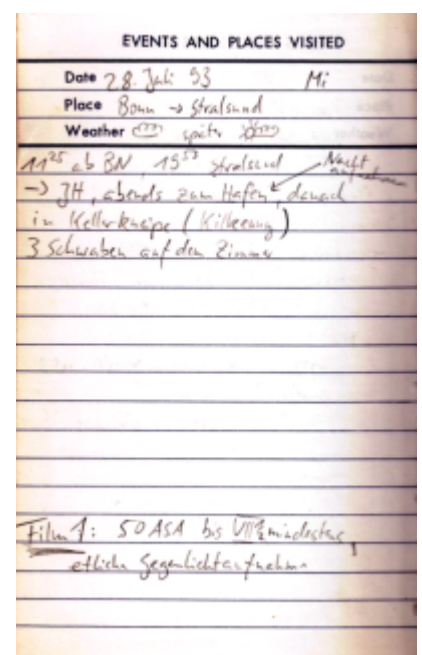 EVENTS AND PLACES VISITED
Date 28. Juli 93 Mi
Place Bonn → Stralsund
Weather später
11²⁵ ab BN, 19⁵³ Stralsund Nachtaufnahmen
→ JH, abends zum Hafen, danach
in Kellerkneipe (Kilkenny)
3 Schwaben auf dem Zimmer
Film 1: 50 ASA bis mindestens
etliche Gegenlichtaufnahmen